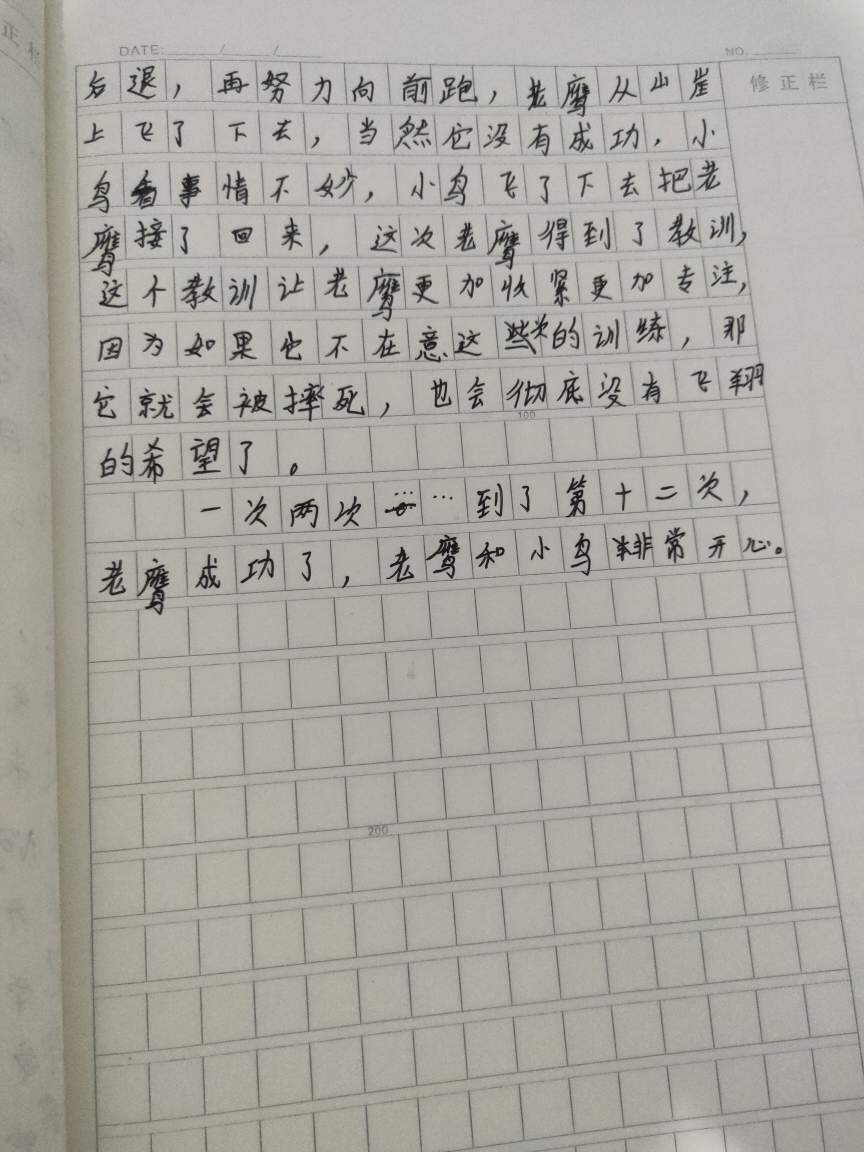 DATE: / /
NO.
修正栏
后退，再努力向前跑，老鹰从山崖
上飞了下去，当然它没有成功，小
鸟看事情不妙，小鸟飞了下去把老
鹰接了回来，这次老鹰得到了教训，
这个教训让老鹰更加收紧更加专注，
因为如果它不在意这些的训练，那
它就会被摔死，也会彻底没有飞翔
100
的希望了。
一次两次……到了第十二次，
老鹰成功了，老鹰和小鸟非常开心。
200